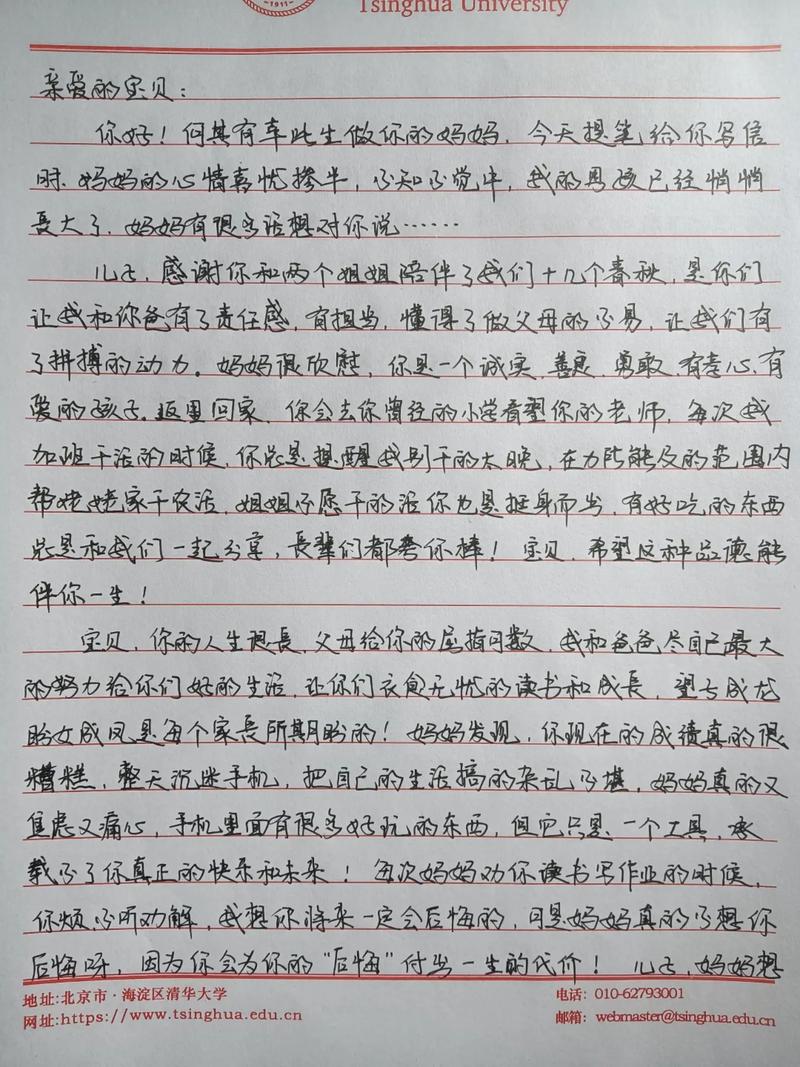 Tsinghua University
1911
亲爱的宝贝：
你好！何其有幸此生做你的妈妈，今天提笔给你写信
时，妈妈的心情喜忧掺半，不知不觉中，我的男孩已经悄悄
长大了，妈妈有很多话想对你说……
儿子，感谢你和两个姐姐陪伴了我们十几个春秋，是你们
让我和你爸有了责任感，有担当，懂得了做父母的不易，让我们有
了拼搏的动力。妈妈很欣慰，你是一个诚实、善良、勇敢、有孝心、有
爱的孩子。返里回家，你会去你曾经的小学看望你的老师，每次我
加班干活的时候，你总是提醒我别干的太晚，在力所能及的范围内
帮姥姥家干农活，姐姐不愿干的活你也是挺身而出，有好吃的东西
总是和我们一起分享，长辈们都夸你棒！宝贝，希望这种品德能
伴你一生！
宝贝，你的人生很长，父母给你的屈指可数，我和爸爸尽自己最大
的努力给你们好的生活，让你们衣食无忧的读书和成长，望子成龙
盼女成凤是每个家长所期盼的！妈妈发现，你现在的成绩真的很
糟糕，整天沉迷手机，把自己的生活搞的杂乱不堪，妈妈真的又
焦虑又痛心，手机里面有很多好玩的东西，但它只是一个工具，承
载不了你真正的快乐和未来！每次妈妈劝你读书写作业的时候，
你烦不听劝解，我想你将来一定会后悔的，可是妈妈真的不想你
后悔呀，因为你会为你的“后悔”付出一生的代价！儿子，妈妈想
地址:北京市·海淀区清华大学
电话: 010-62793001
网址:https://www.tsinghua.edu.cn
邮箱: webmaster@tsinghua.edu.cn